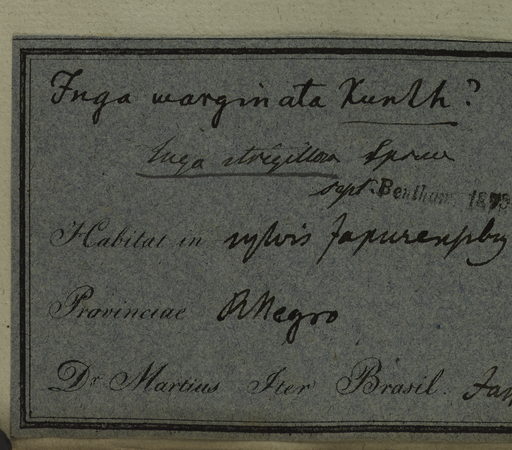 Inga marginata Kunth?
Inga strigillosa Spruce
sept. Bentham. 1873
Habitat in sylvis Japurensibus
Provinciae R Negro
Dr. Martius Iter Brasil. Jan